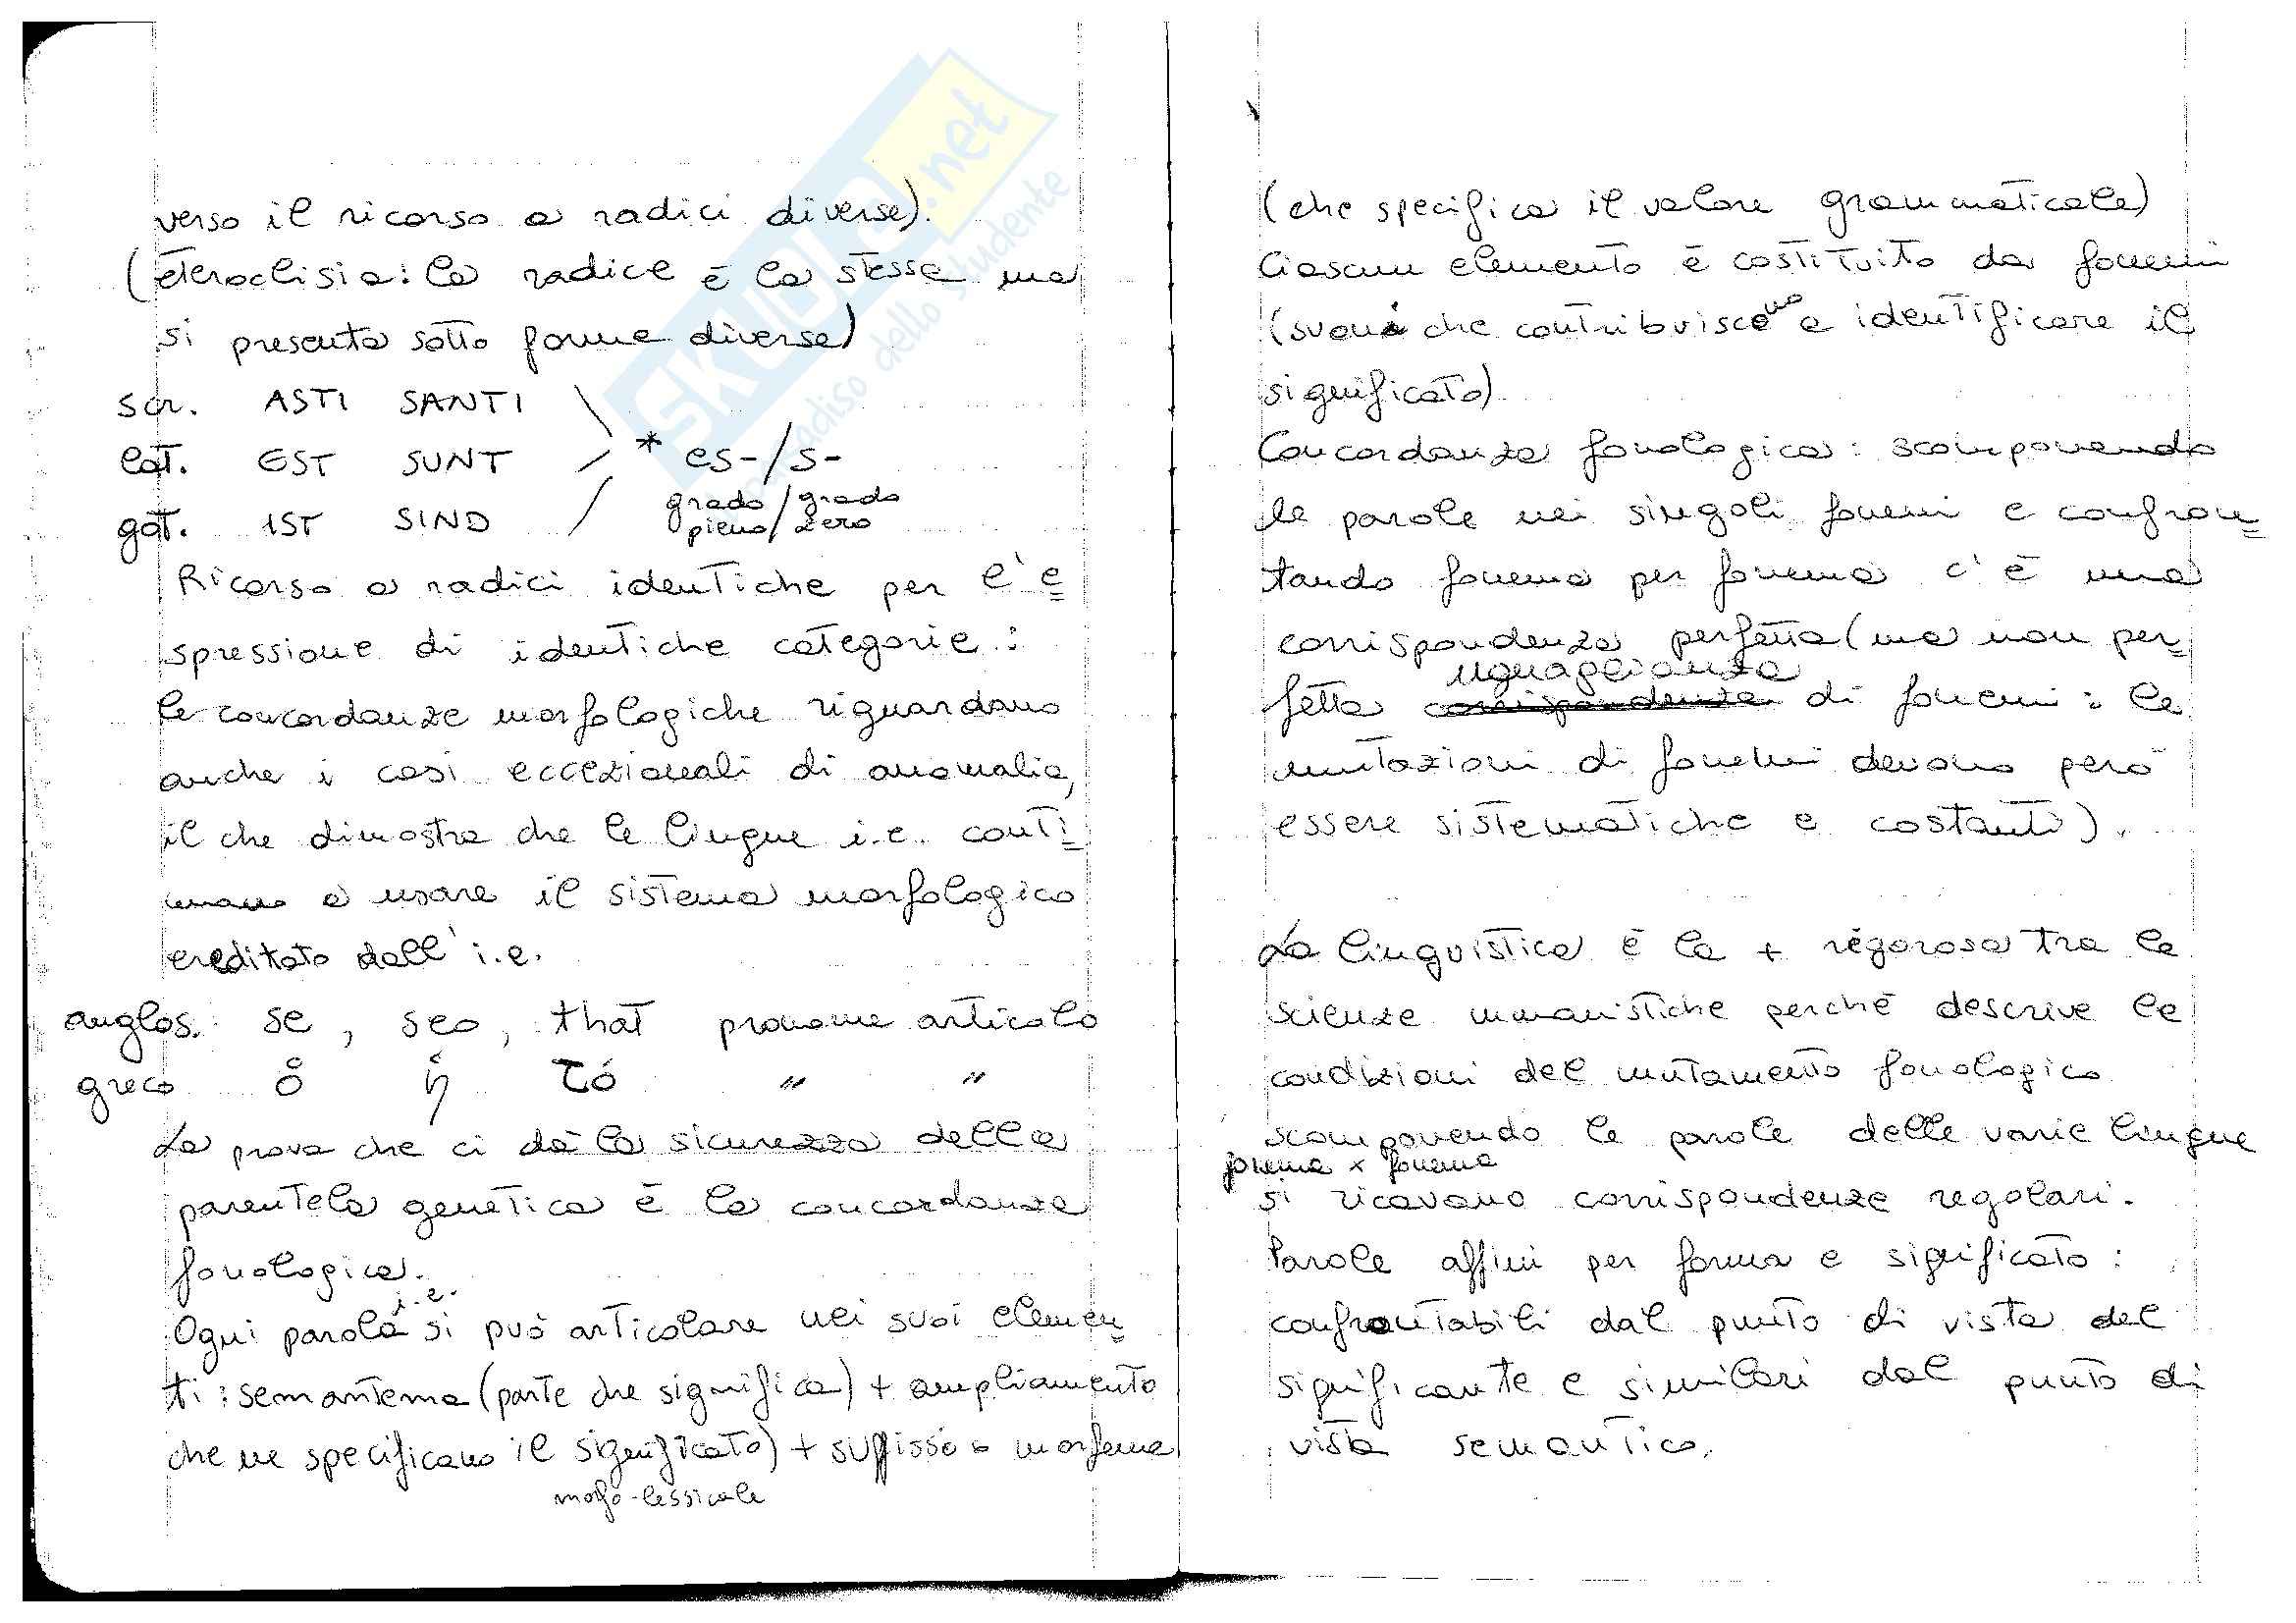 verso il ricorso a radici diverse).
(eteroclisia: la radice è la stessa ma
si presenta sotto forme diverse)
scr. ASTI SANTI
lat. EST SUNT * es-/s-
got. IST SIND grado pieno / grado zero
Ricorso a radici identiche per l'e
spressione di identiche categorie:
le concordanze morfologiche riguardano
anche i casi eccezionali di anomalia,
il che dimostra che le lingue i.e. conti
nuano a usare il sistema morfologico
ereditato dall'i.e.
anglos. se, seo, that pronome articolo
greco ὁ ἡ τό " "
La prova che ci dà la sicurezza della
parentela genetica è la concordanza
fonologica.
Ogni parola i.e. si può articolare nei suoi elemen
ti: semantema (parte che significa) + ampliamento
che ne specificano il significato) + suffisso o morfema
morfo-lessicale
(che specifica il valore grammaticale)
Ciascun elemento è costituito da fonemi
(suoni che contribuiscono a identificare il
significato)
Concordanza fonologica: scomponendo
le parole nei singoli fonemi e confron
tando fonema per fonema c'è una
corrispondenza perfetta (ma non per
fetta corrispondenza uguaglianza di fonemi: le
mutazioni di fonemi devono però
essere sistematiche e costanti).
La linguistica è la + rigorosa tra le
scienze umanistiche perché descrive le
condizioni del mutamento fonologico
scomponendo le parole delle varie lingue
fonema x fonema
si ricavano corrispondenze regolari.
Parole affini per forma e significato:
confrontabili dal punto di vista del
significante e similari dal punto di
vista semantico.
SKUOLA.net
paradiso dello studente